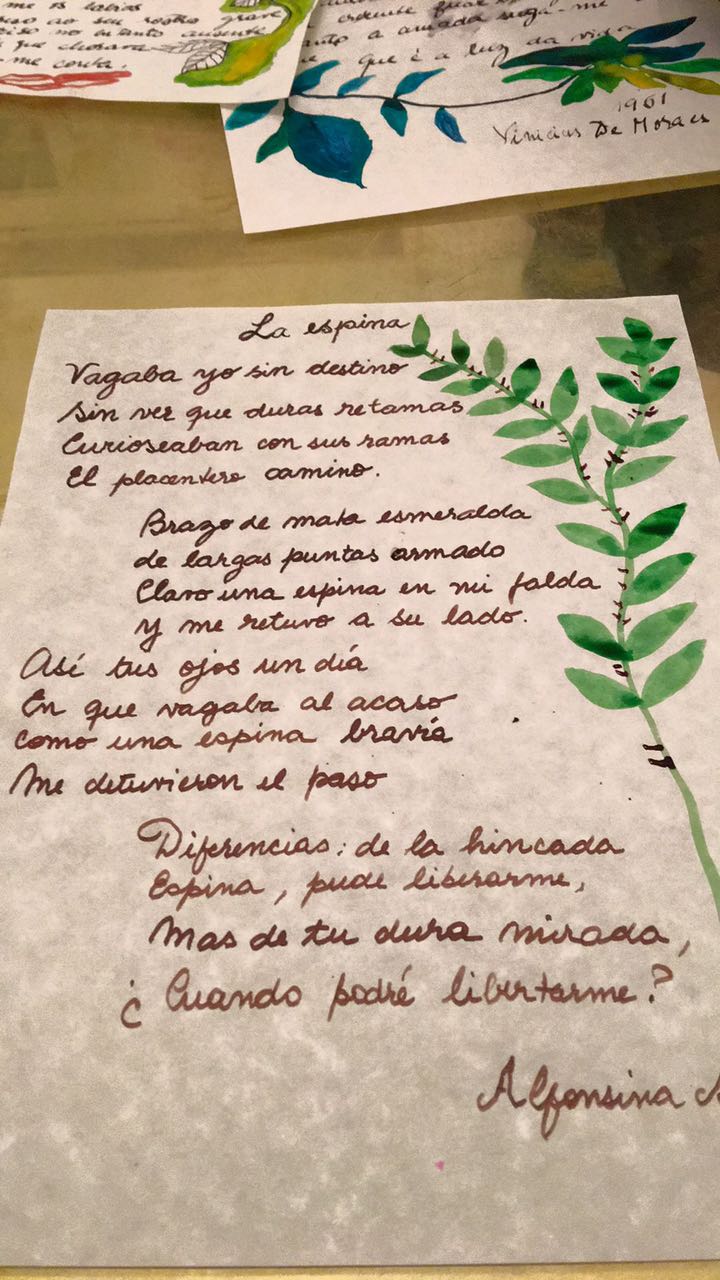 me os labios
ao seu rosto grave
no intanto ausente
que chorava
me conta.
a amada suga-me
que é a luz da vida
1961
Vinicius De Moraes
La espina
Vagaba yo sin destino
Sin ver que duras retamas
Curioseaban con sus ramas
El placentero camino.
Brazo de mata esmeralda
de largas puntas armado
Clavo una espina en mi falda
Y me retuvo a su lado.
Así tus ojos un día
En que vagaba al acaso
como una espina bravía
Me detuvieron el paso
Diferencias: de la hincada
Espina, pude liberarme,
Mas de tu dura mirada,
¿Cuando podré libertarme?
Alfonsina